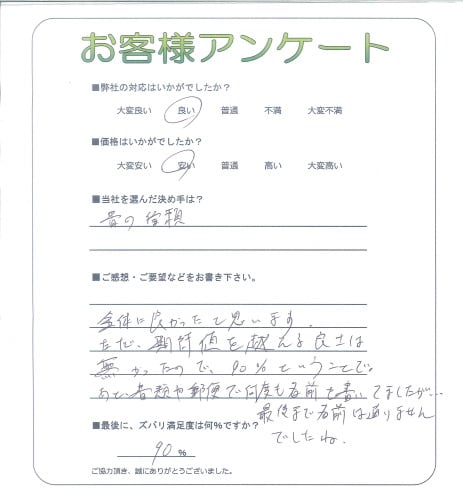 お客様アンケート
■弊社の対応はいかがでしたか?
大変良い 良い 普通 不満 大変不満
■価格はいかがでしたか?
大変安い 安い 普通 高い 大変高い
■当社を選んだ決め手は?
昔の信頼
■ご感想・ご要望などをお書き下さい。
全体に良かったと思います。
ただ、期待値を越える良さは
無かったので、90%ということで。
あと書類や郵便で何度も名前を書いてましたが…
最後まで名前は直りません
でしたね。
■最後に、ズバリ満足度は何%ですか?
90 %
ご協力頂き、誠にありがとうございました。